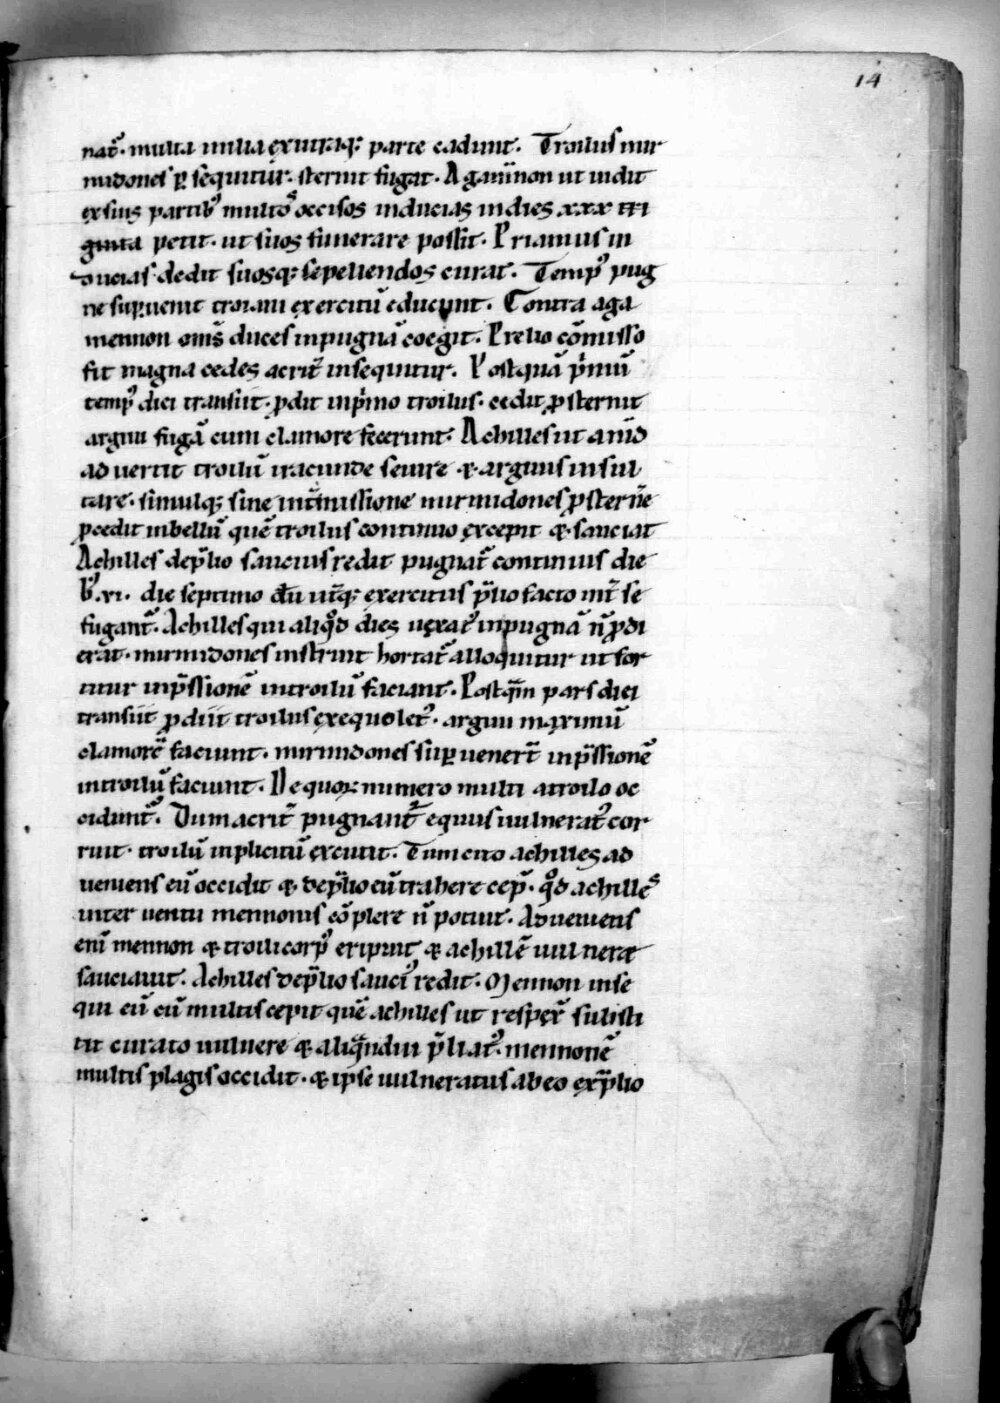 14
nat᷒· multa milia ex utraq; parte cadunt. Troilus mir
midones ꝑ sequitur· sternit fugat. Agam̄non ut uidit
ex suis partib᷒ multos occisos inducias in dies xxx tri
ginta petit· ut suos funerare possit. Priamus in
ducias dedit suosq; sepeliendos curat. Temp᷒ pug
ne suꝑuenit troiani exercitū educunt. Contra aga
mennon om̄s duces in pugnā coegit. Prelio cōmisso
fit magna cedes acrit᷒ insequitur. Postquā pͥmū
temp᷒ diei transiit· ꝓdit in pͥmo troilus· cedit ꝓsternit
argiui fugā cum clamore fecerunt. Achilles ut anīd
aduertit troilū iracunde seuire & argiuis insul
tare· simulq; sine int᷒missione mirmidones ꝓsterne
ꝓcedit in bellū quē troilus continuo excepit & sauciat
Achilles de p̄lio saucius redit pugnat᷒ continuis die
b᷒ .vi. die septimo dū ut᷒q; exercitus p̄lio facto int᷒ se
fugant᷒. Achilles qui aliq̊d dies uexat᷒ in pugnā n̄ ꝓdi
erat· mirmidones instruit hortat᷒ alloquitur ut for
titur inp̄ssionē in troilū faciant. Postq̄m pars diei
transiit ꝓdiit troilus ex equo let᷒. argiui maximū
clamorē faciunt. mirmidones suꝑuener̄t inp̄ssionē
in troilū faciunt. De quoꝝ numero multi a troilo oc
cidunt᷒. Dum acrit᷒ pugnant᷒ equus uulnerat᷒ cor
ruit· troilū inplicitū excutit. Tum cito achilles ad
ueniens eū occidit & de p̄lio eū trahere cep̄. q̊d achilles
inter uentu mennonis cōplere n̄ potuit. Adueniens
eni mennon & troili corp᷒ eripuit & achillē uulnere
sauciauit. Achilles de p̄lio sauci᷒ redit. Mennon inse
qui eū cū multis cepit quē achilles ut respex̄ substi
tit curato uulnere & aliq̄ndiu p̄liat᷒. mennonē
multis plagis occidit. & ipse uulneratus ab eo ex p̄lio